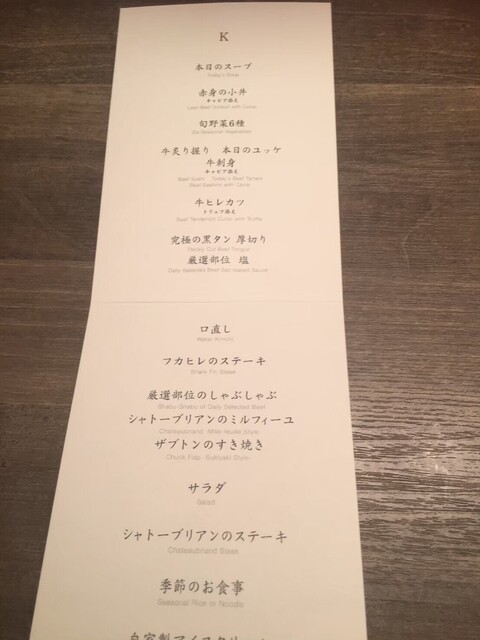 K
本日のスープ
Today's Soup
赤身の小丼
キャビア添え
Lean Beef Donburi with Caviar
旬野菜6種
Six Seasonal Vegetables
牛炙り握り　本日のユッケ
牛刺身
キャビア添え
Beef Sushi Today's Beef Tartare
Beef Sashimi with Caviar
牛ヒレカツ
トリュフ添え
Beef Tenderloin Cutlet with Truffle
究極の黒タン 厚切り
Thickly Cut Beef Tongue
厳選部位 塩
Daily Selected Beef
口直し
Water Kimchi
フカヒレのステーキ
Shark Fin Steak
厳選部位のしゃぶしゃぶ
Shabu-Shabu of Daily Selected Beef
シャトーブリアンのミルフィーユ
Chateaubriand Mille-feuille Style
ザブトンのすき焼き
Chuck Flap Sukiyaki Style
サラダ
Salad
シャトーブリアンのステーキ
Chateaubriand Steak
季節のお食事
Seasonal Rice or Noodle
自家製アイスクリーム